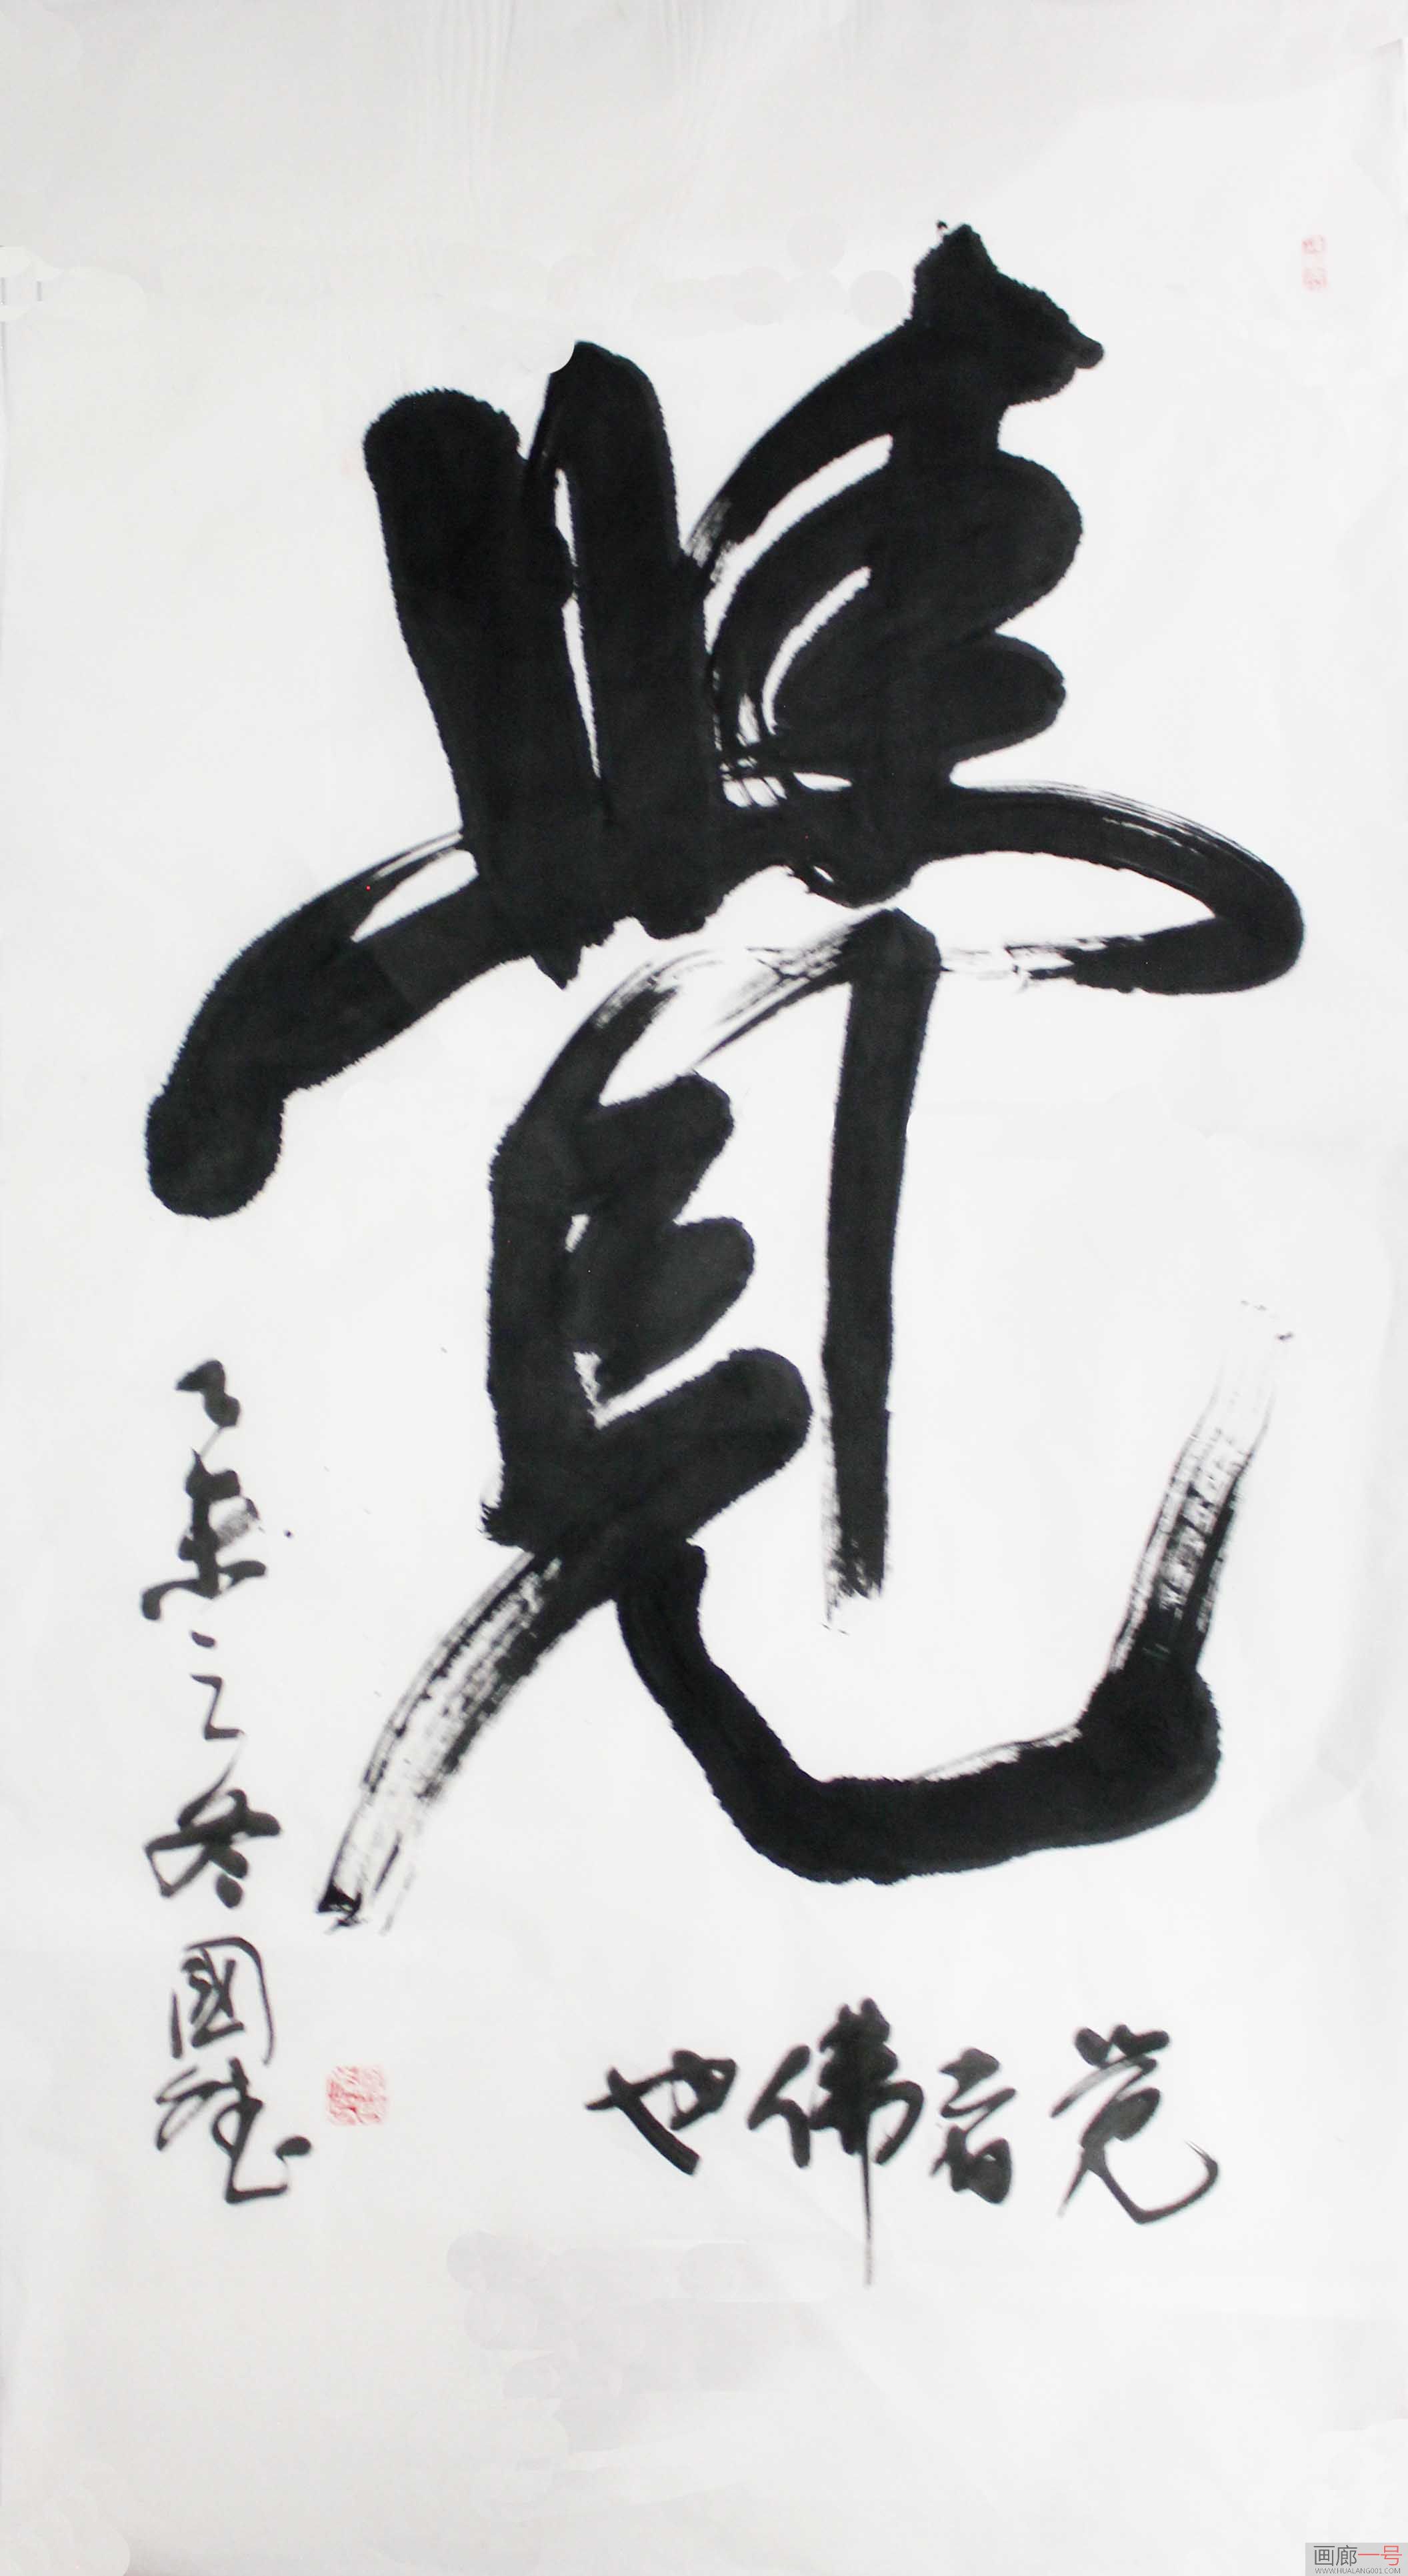 覺
觉者佛也
之冬國斌
画廊一号
WWW.HUALANG001.COM